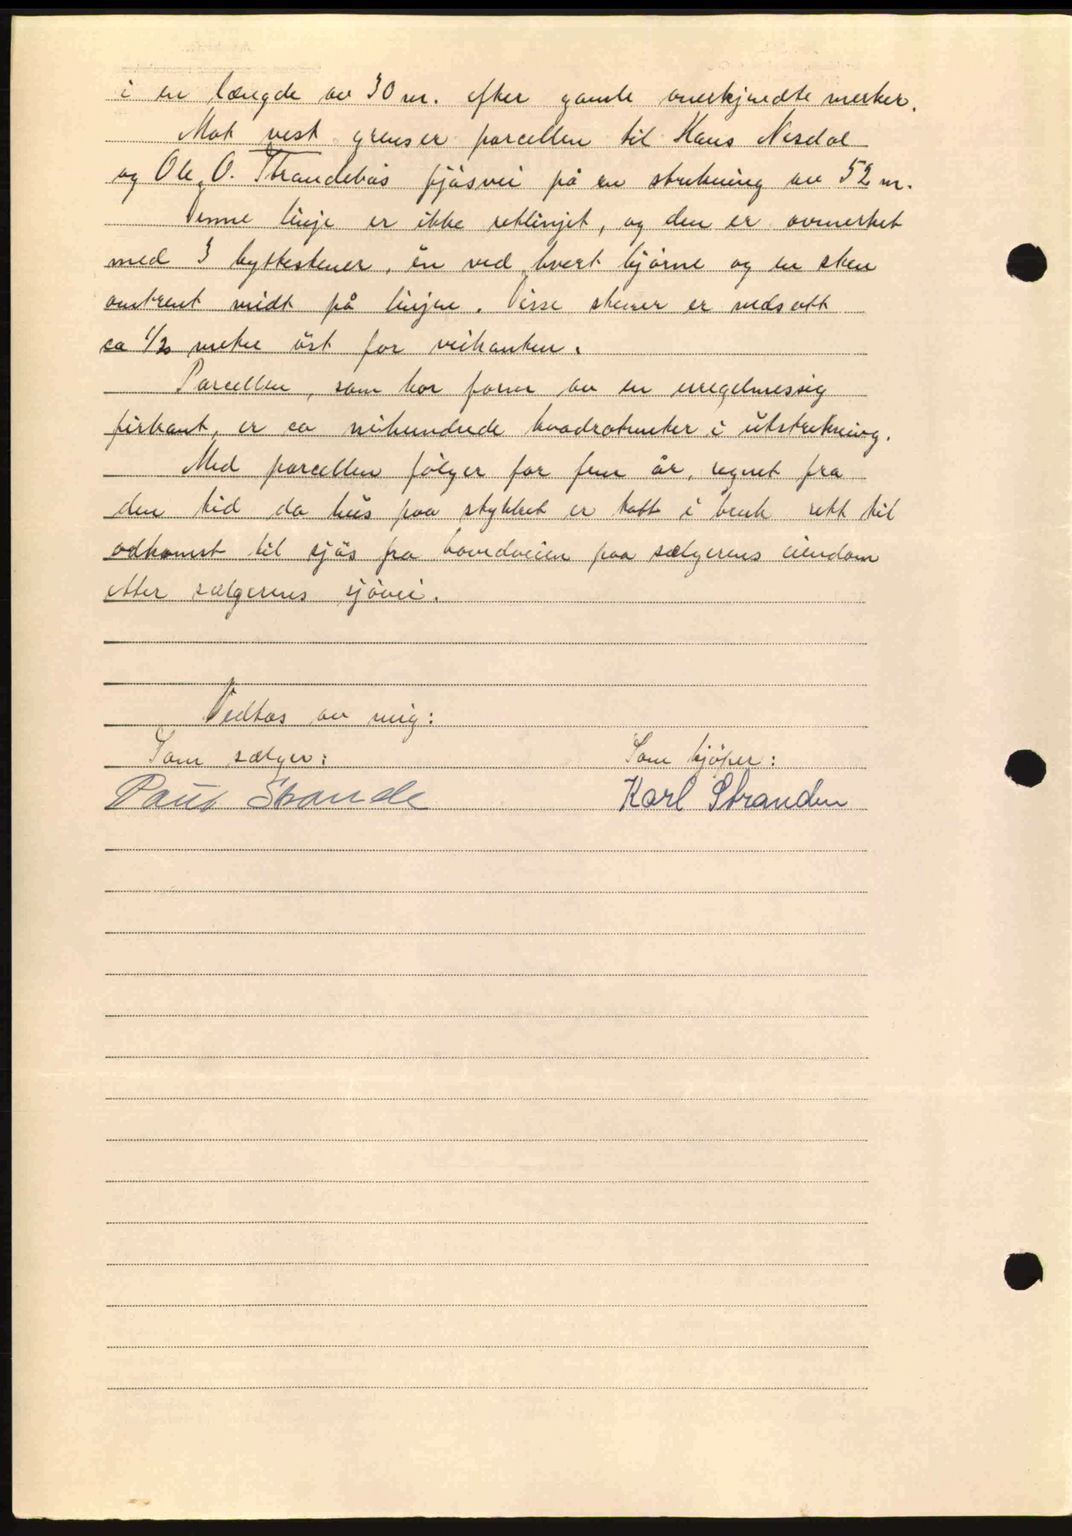 i en længde av 30 m. efter gamle anerkjendte merker.
Mot vest grenser parcellen til Hans Nesdal
og Ole O. Strandebøs fjøsvei på en strekning av 52 m.
Denne linje er ikke retlinjet, og den er avmerket
med 3 byttestener, én ved hvert hjørne og en sten
omtrent midt på linjen. Disse stener er nedsatt
ca 1/2 meter øst for veikanten.
Parcellen, som har form av en uregelmessig
firkant, er ca nihundrede kvadratmeter i utstrekning.
Med parcellen følger for fem år, regnet fra
den tid da hus paa stykket er tatt i bruk rett til
adkomst til sjøs fra hovedveien paa sælgerens eiendom
etter sælgerens sjøvei.
Vedtas av mig:
Som sælger: Som kjøper:
Paul Strande Karl Stranden